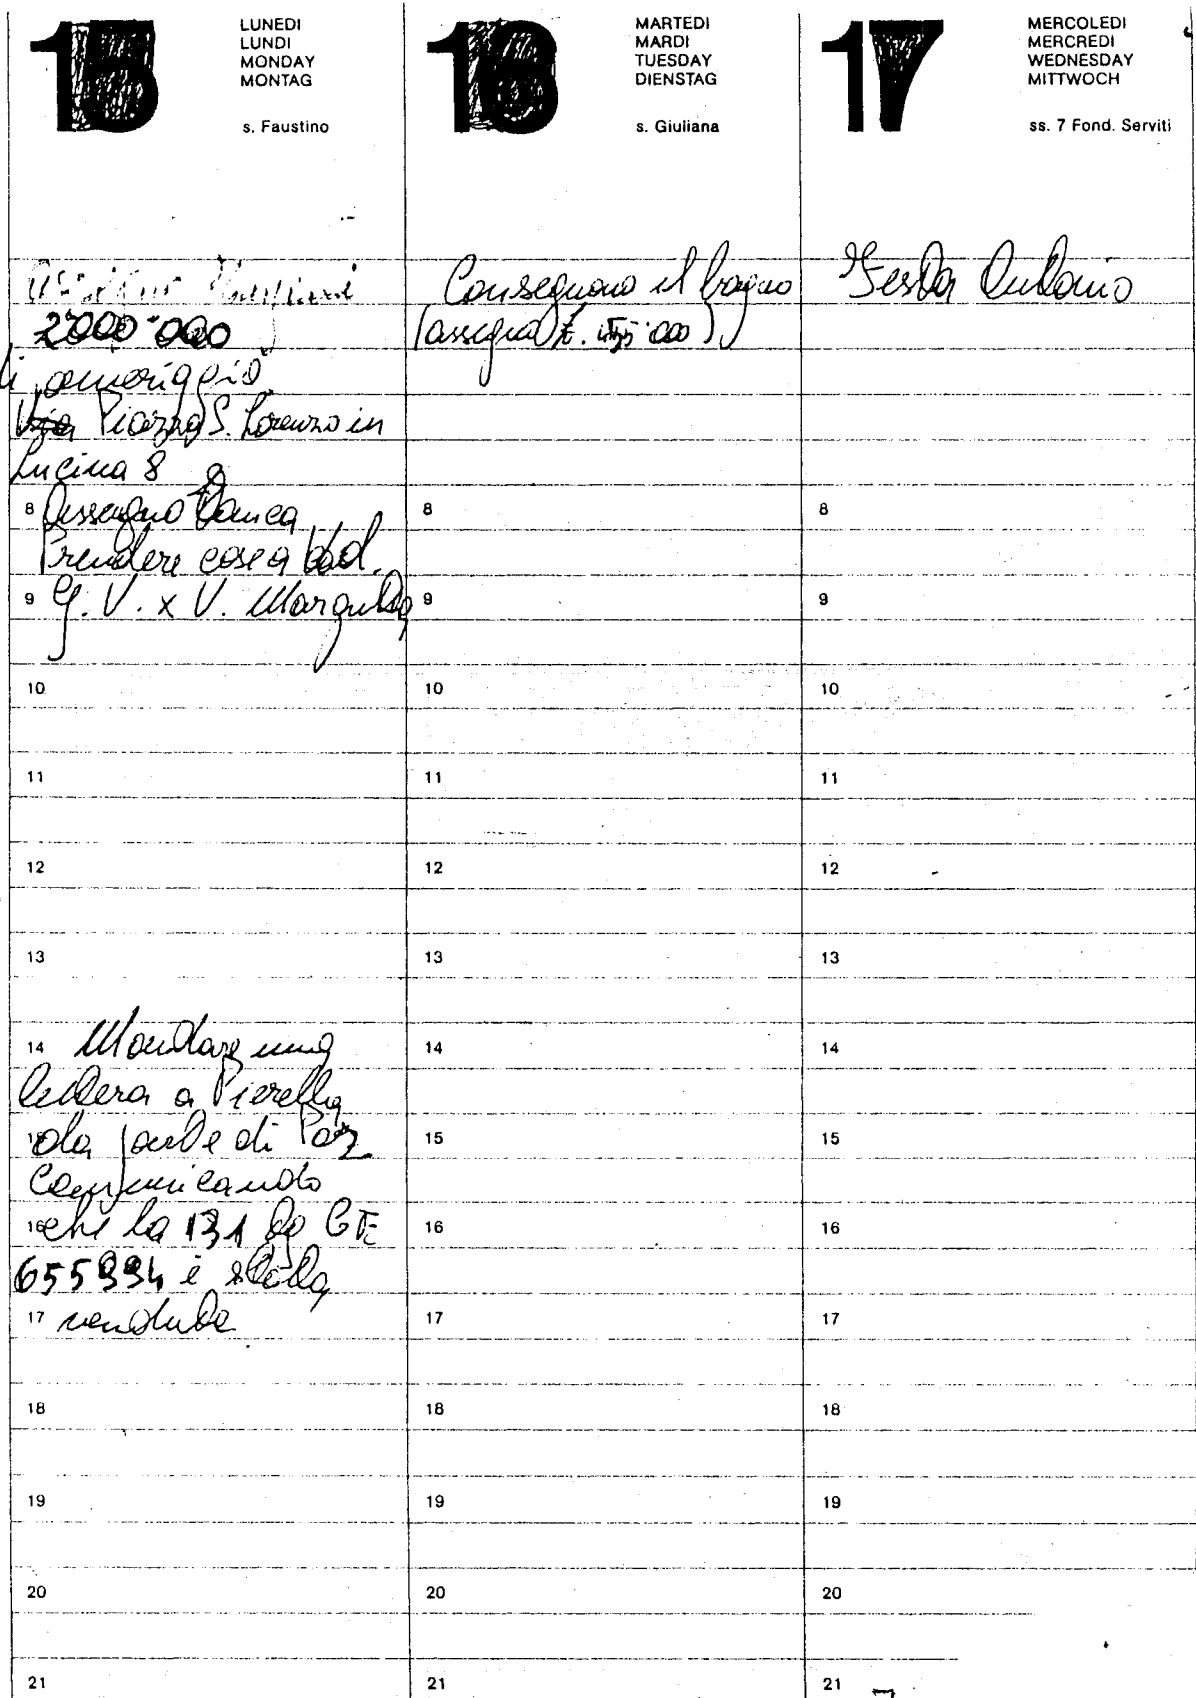 15
LUNEDI
LUNDI
MONDAY
MONTAG
s. Faustino
2000.000
di pomeriggio
Via Piazza S. Lorenzo in
Lucina 8
8 Assegno Banca
Prendere cose a
9 G. V. x V. Margutta
10
11
12
13
14 Mandare una
lettera a Pierella
15 da parte di Paz
Comunicando
16 che la 131 
655994 è stata
17 venduta
18
19
20
21
16
MARTEDI
MARDI
TUESDAY
DIENSTAG
s. Giuliana
Consegnano il bagno
(assegno £. 000)
8
9
10
11
12
13
14
15
16
17
18
19
20
21
17
MERCOLEDI
MERCREDI
WEDNESDAY
MITTWOCH
ss. 7 Fond. Serviti
Festa Antonio
8
9
10
11
12
13
14
15
16
17
18
19
20
21